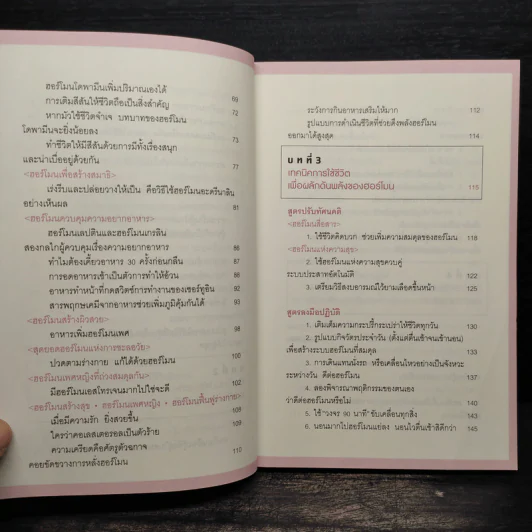 ฮอร์โมนโดพามีนเพิ่มปริมาณเองได้ 69
การเติมสีสันให้ชีวิตถือเป็นสิ่งสำคัญ 72
หากมัวใช้ชีวิตจำเจ บทบาทของฮอร์โมน
โดพามีนจะยิ่งน้อยลง 73
ทำชีวิตให้มีสีสันด้วยการมีทั้งเรื่องสนุก
และน่าเบื่ออยู่ด้วยกัน 77
<ฮอร์โมนเพื่อสร้างสมาธิ>
เร่งรีบและปล่อยวางให้เป็น คือวิธีใช้ฮอร์โมนอะดรีนาลิน
อย่างเห็นผล 81
<ฮอร์โมนควบคุมความอยากอาหาร>
ฮอร์โมนเลปตินและฮอร์โมนเกรลิน
สองกลไกผู้ควบคุมเรื่องความอยากอาหาร 86
ทำไมต้องเคี้ยวอาหาร 30 ครั้งก่อนกลืน 87
การอดอาหารเช้าเป็นตัวการทำให้อ้วน 88
อาหารทำหน้าที่กดสวิตช์การทำงานของเซร์ทูอิน 90
สารพฤกษเคมีจากอาหารช่วยเพิ่มภูมิคุ้มกันได้ 93
<ฮอร์โมนสร้างผิวสวย>
อาหารเพิ่มฮอร์โมนเพศ 98
<สุดยอดฮอร์โมนแห่งการชะลอวัย>
ปวดตามร่างกาย แก้ได้ด้วยฮอร์โมน 100
<ฮอร์โมนเพศหญิงที่ถ่วงสมดุลกัน>
มีฮอร์โมนเอสโทรเจนมากไปใช่จะดี 102
<ฮอร์โมนสร้างสุข • ฮอร์โมนเพศหญิง • ฮอร์โมนฟื้นฟูร่างกาย>
เมื่อมีความรัก ยิ่งสวยขึ้น
ใครว่าคอเลสเตอรอลเป็นตัวร้าย 108
ความเครียดคือศัตรูตัวฉกาจ
คอยขัดขวางการหลั่งฮอร์โมน 110
ระวังการกินอาหารเสริมให้มาก 112
รูปแบบการดำเนินชีวิตที่ช่วยดึงพลังฮอร์โมน
ออกมาได้สูงสุด 114
บทที่ 3
เทคนิคการใช้ชีวิต
เพื่อผลักดันพลังของฮอร์โมน 115
สูตรปรับทัศนคติ
<ฮอร์โมนสื่อสาร>
1. ใช้ชีวิตคิดบวก ช่วยเพิ่มความสมดุลของฮอร์โมน 118
<ฮอร์โมนแห่งความสุข>
2. ใช้ฮอร์โมนแห่งความสุขควบคู่
ระบบประสาทอัตโนมัติ 122
3. เตรียมวิธีสงบอารมณ์ไว้ยามเลือดขึ้นหน้า 125
สูตรลงมือปฏิบัติ
1. เติมเต็มความกระปรี้กระเปร่าให้ชีวิตทุกวัน 130
2. รูปแบบกิจวัตรประจำวัน (ตั้งแต่ตื่นเช้าจนเข้านอน)
เพื่อสร้างระบบฮอร์โมนที่สมดุล 133
3. การเดินแทนนั่งรถ หรือเคลื่อนไหวอย่างเป็นจังหวะ
ระหว่างวัน ดีต่อฮอร์โมน 137
4. ลองพิจารณาพฤติกรรมของตนเอง
ว่าดีต่อฮอร์โมนหรือไม่ 140
5. ใช้ "วงจร 90 นาที" ขับเคลื่อนทุกสิ่ง 143
6. นอนมากไปฮอร์โมนแย่ลง นอนไวตื่นเช้าสิดีกว่า 145